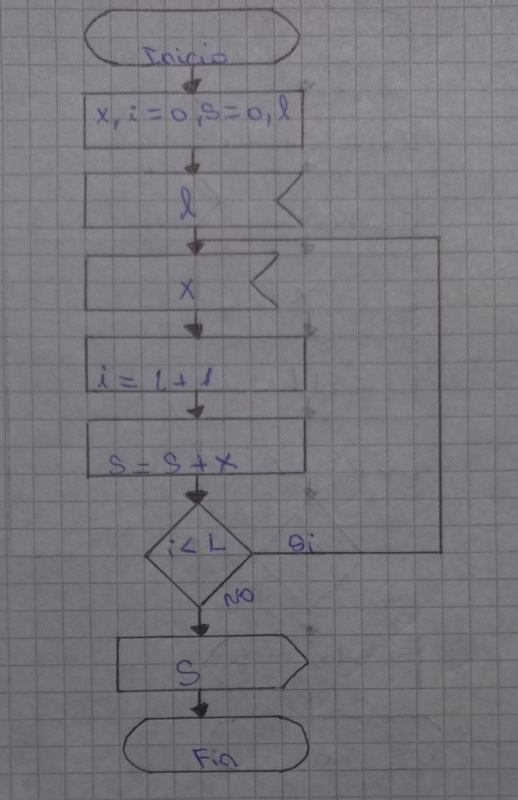 Inicio
x, i = 0, S = 0, l
l
x
i = i + 1
S = S + x
i < L
Si
NO
S
Fin